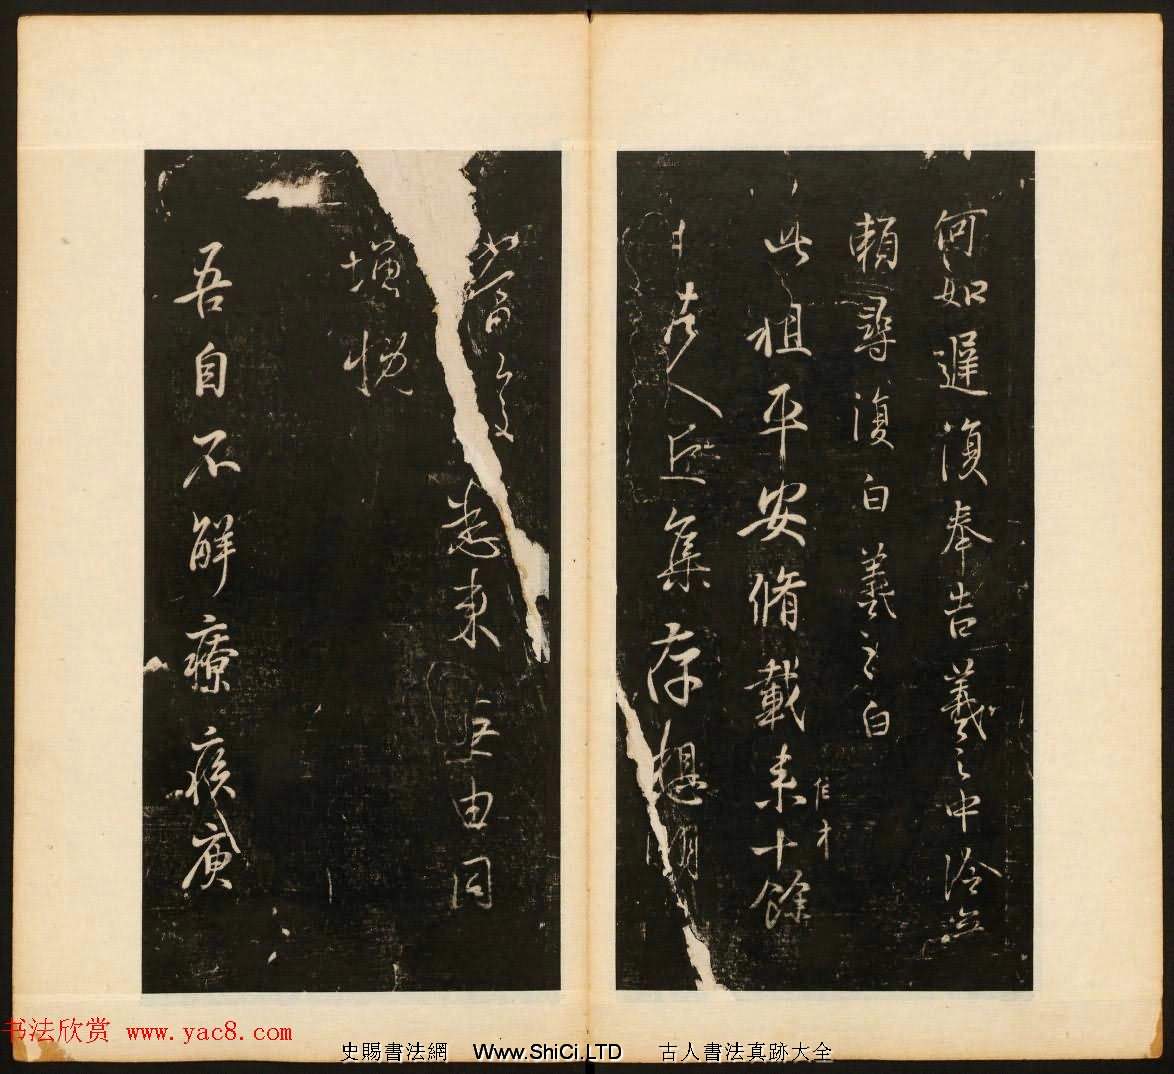 何如遲復奉告羲之中冷無
賴尋復白羲之白
此粗平安脩載來十餘
作才
日諸人近集存想明
增慨
悉來無由同
吾自不解療疾庾
书法欣赏 www.yac8.com
史賜書法網 Www.ShiCi.LTD 古人書法真跡大全